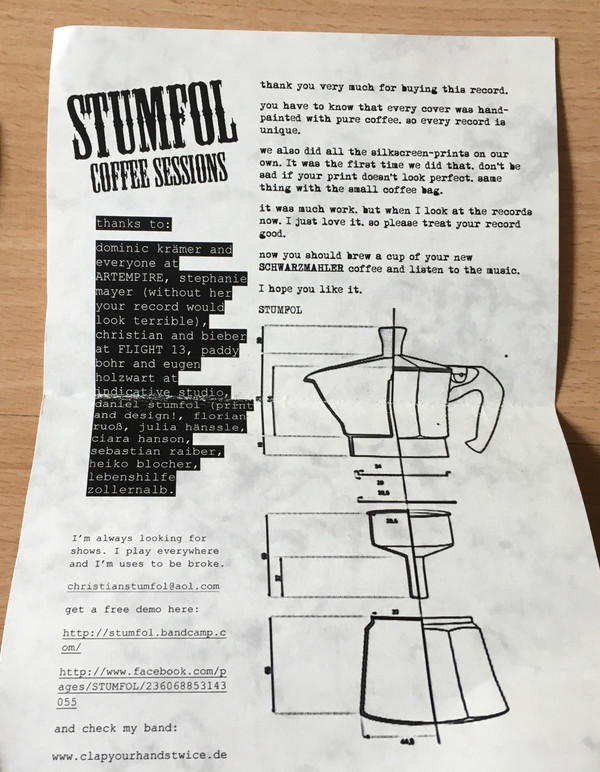 STUMFOL
COFFEE SESSIONS
thanks to:
dominic krämer and
everyone at
ARTEMPIRE, stephanie
mayer (without her
your record would
look terrible),
christian and bieber
at FLIGHT 13, paddy
bohr and eugen
holzwart at
indicative studio,
daniel stumfol (print
and design!, florian
ruoß, julia hänssle,
ciara hanson,
sebastian raiber,
heiko blocher,
lebenshilfe
zollernalb.
I'm always looking for
shows. I play everywhere
and I'm uses to be broke.
christianstumfol@aol.com
get a free demo here:
http://stumfol.bandcamp.c
om/
http://www.facebook.com/p
ages/STUMFOL/236068853143
055
and check my band:
www.clapyourhandstwice.de
thank you very much for buying this record.
you have to know that every cover was hand-
painted with pure coffee. so every record is
unique.
we also did all the silkscreen-prints on our
own. It was the first time we did that. don't be
sad if your print doesn't look perfect. same
thing with the small coffee bag.
it was much work. but when I look at the records
now. I just love it. so please treat your record
good.
now you should brew a cup of your new
SCHWARZMAHLER coffee and listen to the music.
I hope you like it.
STUMFOL